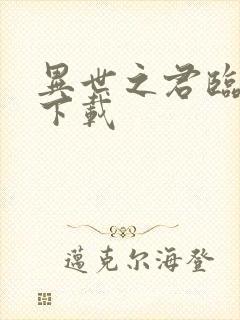 異世之君臨
下載
邁克尔海登